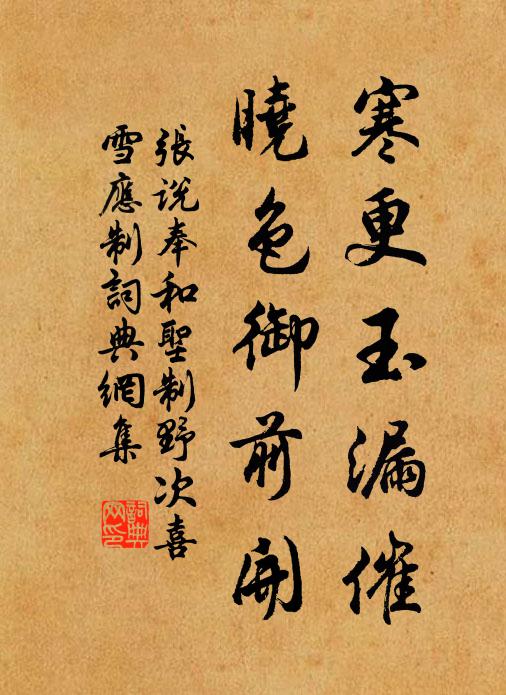 寒更玉漏催
曉色御前開
張說奉和聖制野次喜
雪應制詞典網集
詞典
网印